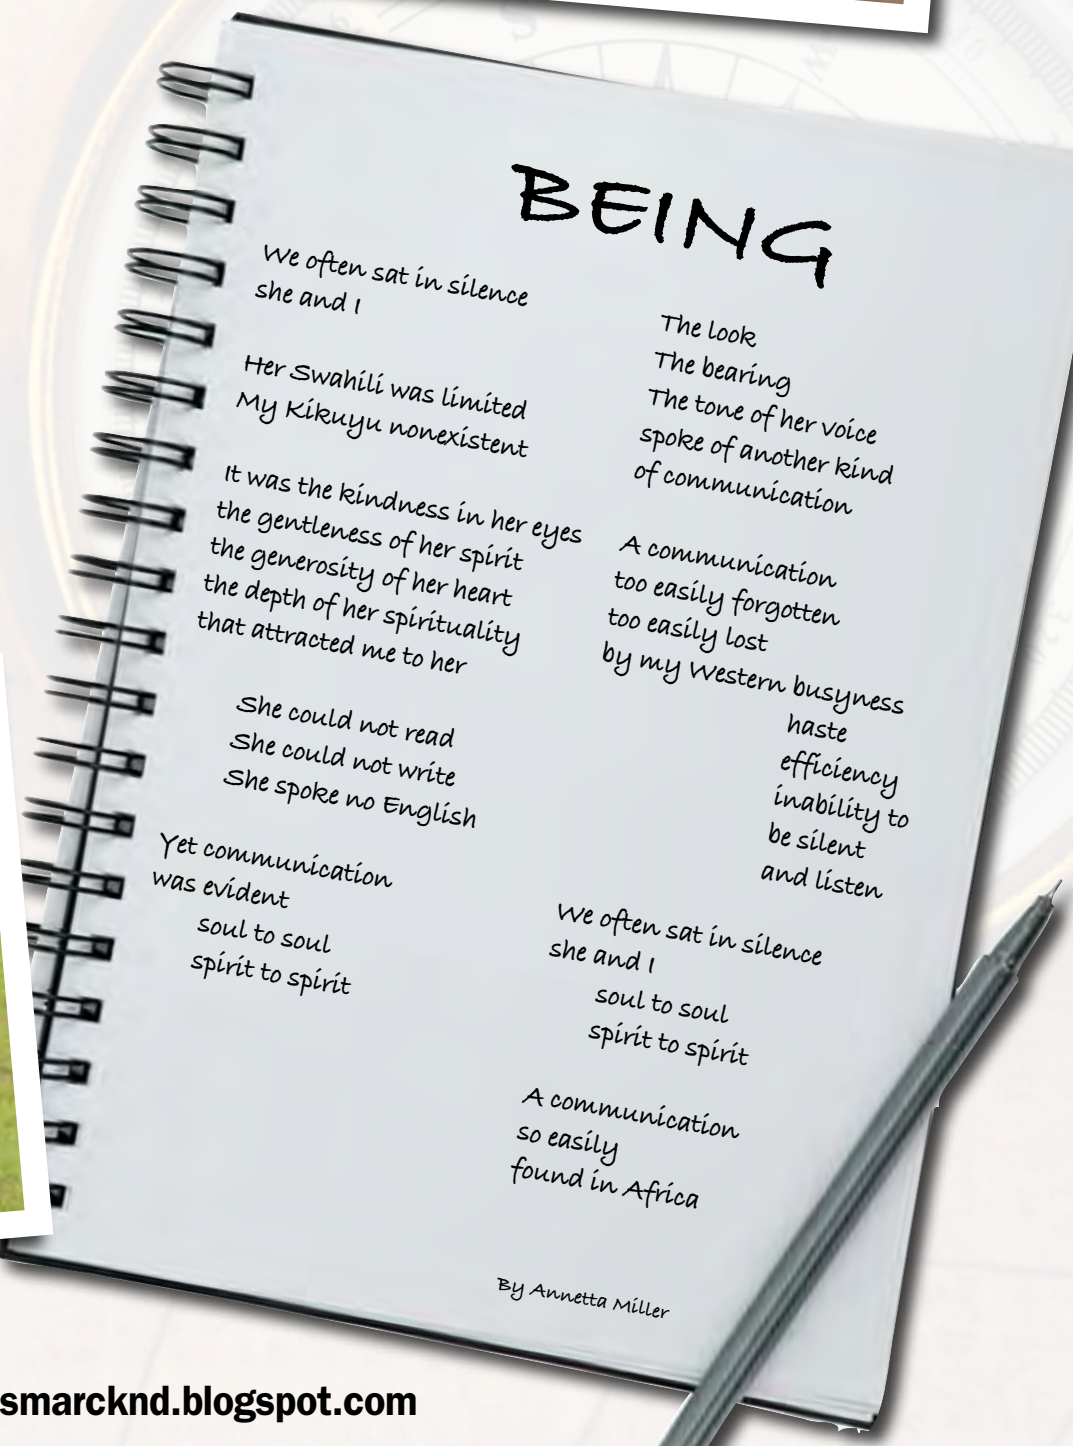 BEING
We often sat in silence
she and I
Her Swahili was limited
My Kikuyu nonexistent
It was the kindness in her eyes
the gentleness of her spirit
the generosity of her heart
the depth of her spirituality
that attracted me to her
She could not read
She could not write
She spoke no English
Yet communication
was evident
soul to soul
spirit to spirit
The look
The bearing
The tone of her voice
spoke of another kind
of communication
A communication
too easily forgotten
too easily lost
by my Western busyness
haste
efficiency
inability to
be silent
and listen
We often sat in silence
she and I
soul to soul
spirit to spirit
A communication
so easily
found in Africa
By Annetta Miller
smarcknd.blogspot.com